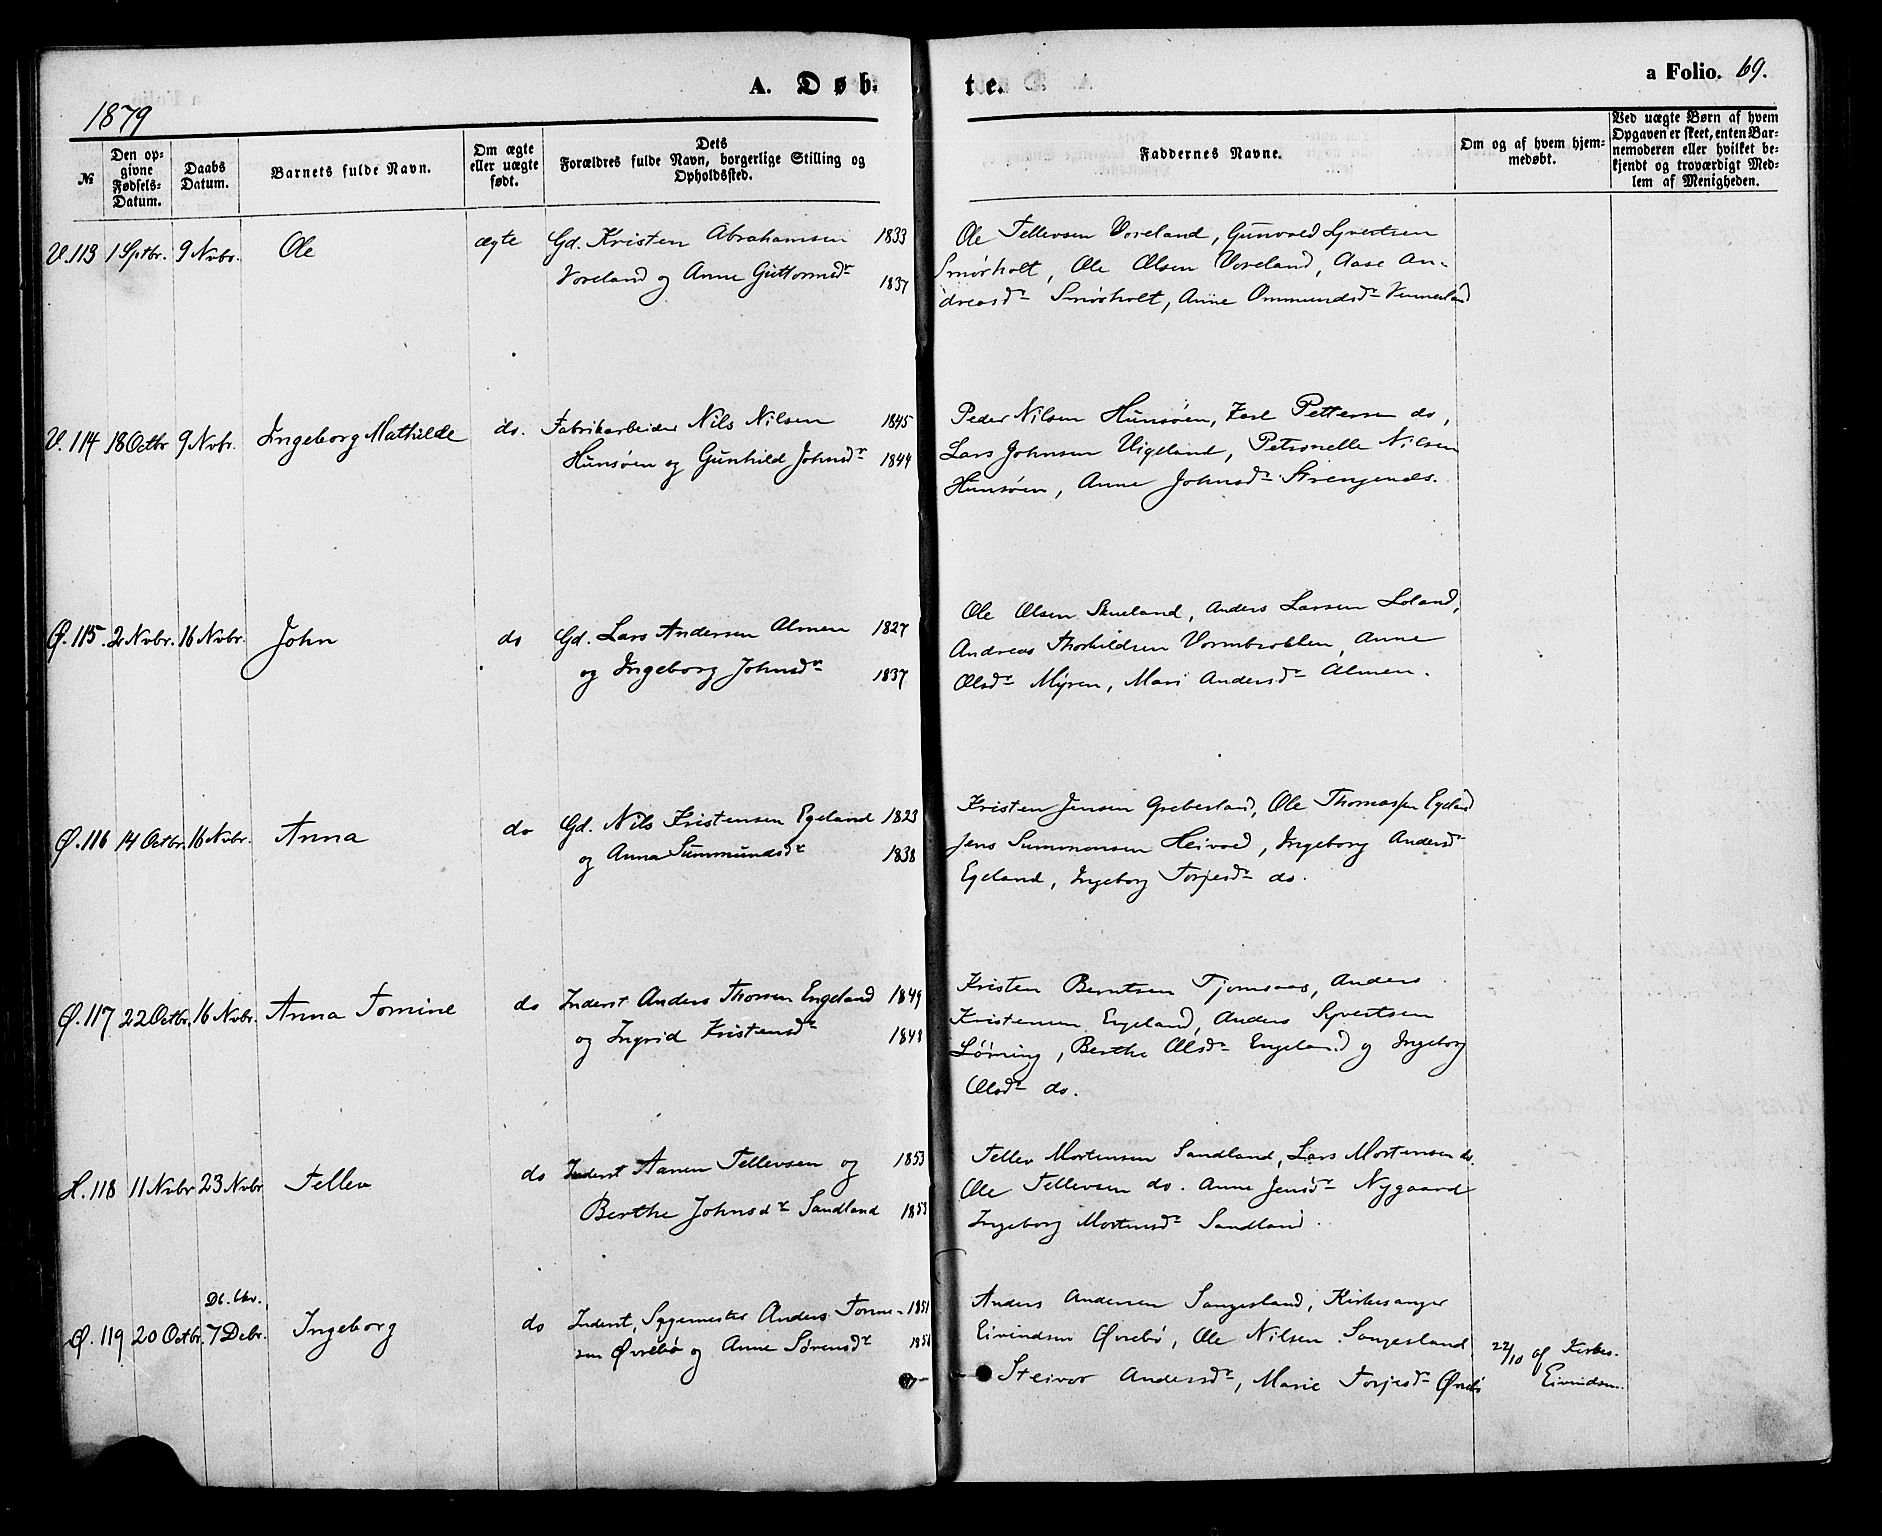 A. Døb-
te.
a Folio. 69.
1879
№
Den op-
givne
Fødsels-
Datum.
Daabs
Datum.
Barnets fulde Navn.
Om ægte
eller uægte
født.
Dets
Forældres fulde Navn, borgerlige Stilling og
Opholdssted.
Faddernes Navne.
Om og af hvem hjem-
medøbt.
Ved uægte Børn af hvem
Opgaven er skeet, enten Bar-
nemoderen eller hvilket be-
kjendt og troværdigt Med-
lem af Menigheden.
V. 113 1 Sptbr. 9 Nvbr. Ole ægte Gd. Kristen Abrahamsen 1833
Voreland og Anne Guttormsdr 1837
Ole Tellevsen Voreland, Gunvald Syvertsen
Smørholt, Ole Olsen Voreland, Aase An-
dreasdr Smørholt, Anne Ommundsdr Vennerland
V. 114 18 Octbr 9 Nvbr. Ingeborg Mathilde do. Fabrikarbeider Nils Nilsen 1845
Hunsøen og Gunhild Johnsdr 1844
Peder Nilsen Hunsøen, Karl Pettersen do,
Lars Johnsen Vigeland, Petronelle Nilsen
Hunsøen, Anne Johnsdr Strengends.
Ø. 115. 2 Nvbr. 16 Nvbr. John do Gd. Lars Andersen Almen 1827
og Ingeborg Johnsdr 1837
Ole Olsen Skueland, Anders Larsen Loland,
Andreas Thorkildsen Vormbrokken, Anne
Olsdr Myren, Mari Andersdr Almen.
Ø. 116 14 Octbr. 16 Nvbr. Anna do Gd. Nils Kristensen Egeland 1823
og Anna Summundsdr 1838
Kristen Jensen Greibesland, Ole Thomassen Egeland
Jens Summonsen Heivold, Ingeborg Andersdr
Egeland, Ingeborg Torjesdr do.
Ø. 117 22 Octbr. 16 Nvbr. Anna Tomine do Inderst Anders Thorsen Engeland 1849
og Ingrid Kristensdr 1848
Kristen Berntsen Tjomsaas, Anders
Kristensen Engeland, Anders Syvertsen
Løining, Berthe Olsdr Engeland og Ingeborg
Olsdr do.
H. 118 11 Nvbr 23 Nvbr Tellev do Inderst Aanen Tellevsen og 1853
Berthe Johnsdr Sandland 1853
Tellev Mortensen Sandland, Lars Mortensen do.
Ole Tellevsen do. Anne Jensdr Nygaard
Ingeborg Mortensdr Sandland.
Ø. 119 20 Octbr. 7 Debr. Ingeborg do Inderst, Sygemester Anders Tomme- 1851
sen Øvrebø og Anne Sørensdr
Anders Andersen Sangesland, Kirkesanger
Eivindsen Øvrebø, Ole Nilsen Sangesland,
Steivor Andersdr, Marie Torjesdr Øvrebø
22/10 af Kirkes.
Eivindsen.